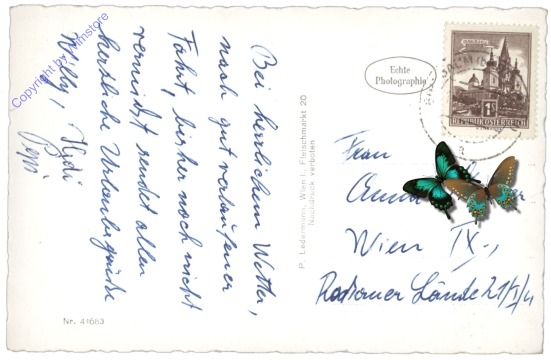 Bei herrlichem Wetter,
nach gut verlaufener
Fahrt, bisher noch nicht
vereist sendet allen
herzliche Urlaubsgrüße
Willy, Heidi
Pepi
Echte
Photographie
MARIAZELL
1S
REPUBLIK ÖSTERREICH
P. Ledermann, Wien I., Fleischmarkt 20
Nachdruck verboten
Frau
Anna
Wien IX.,
Lände 21/I/4
Nr. 41683
Copyright by Wilnstore